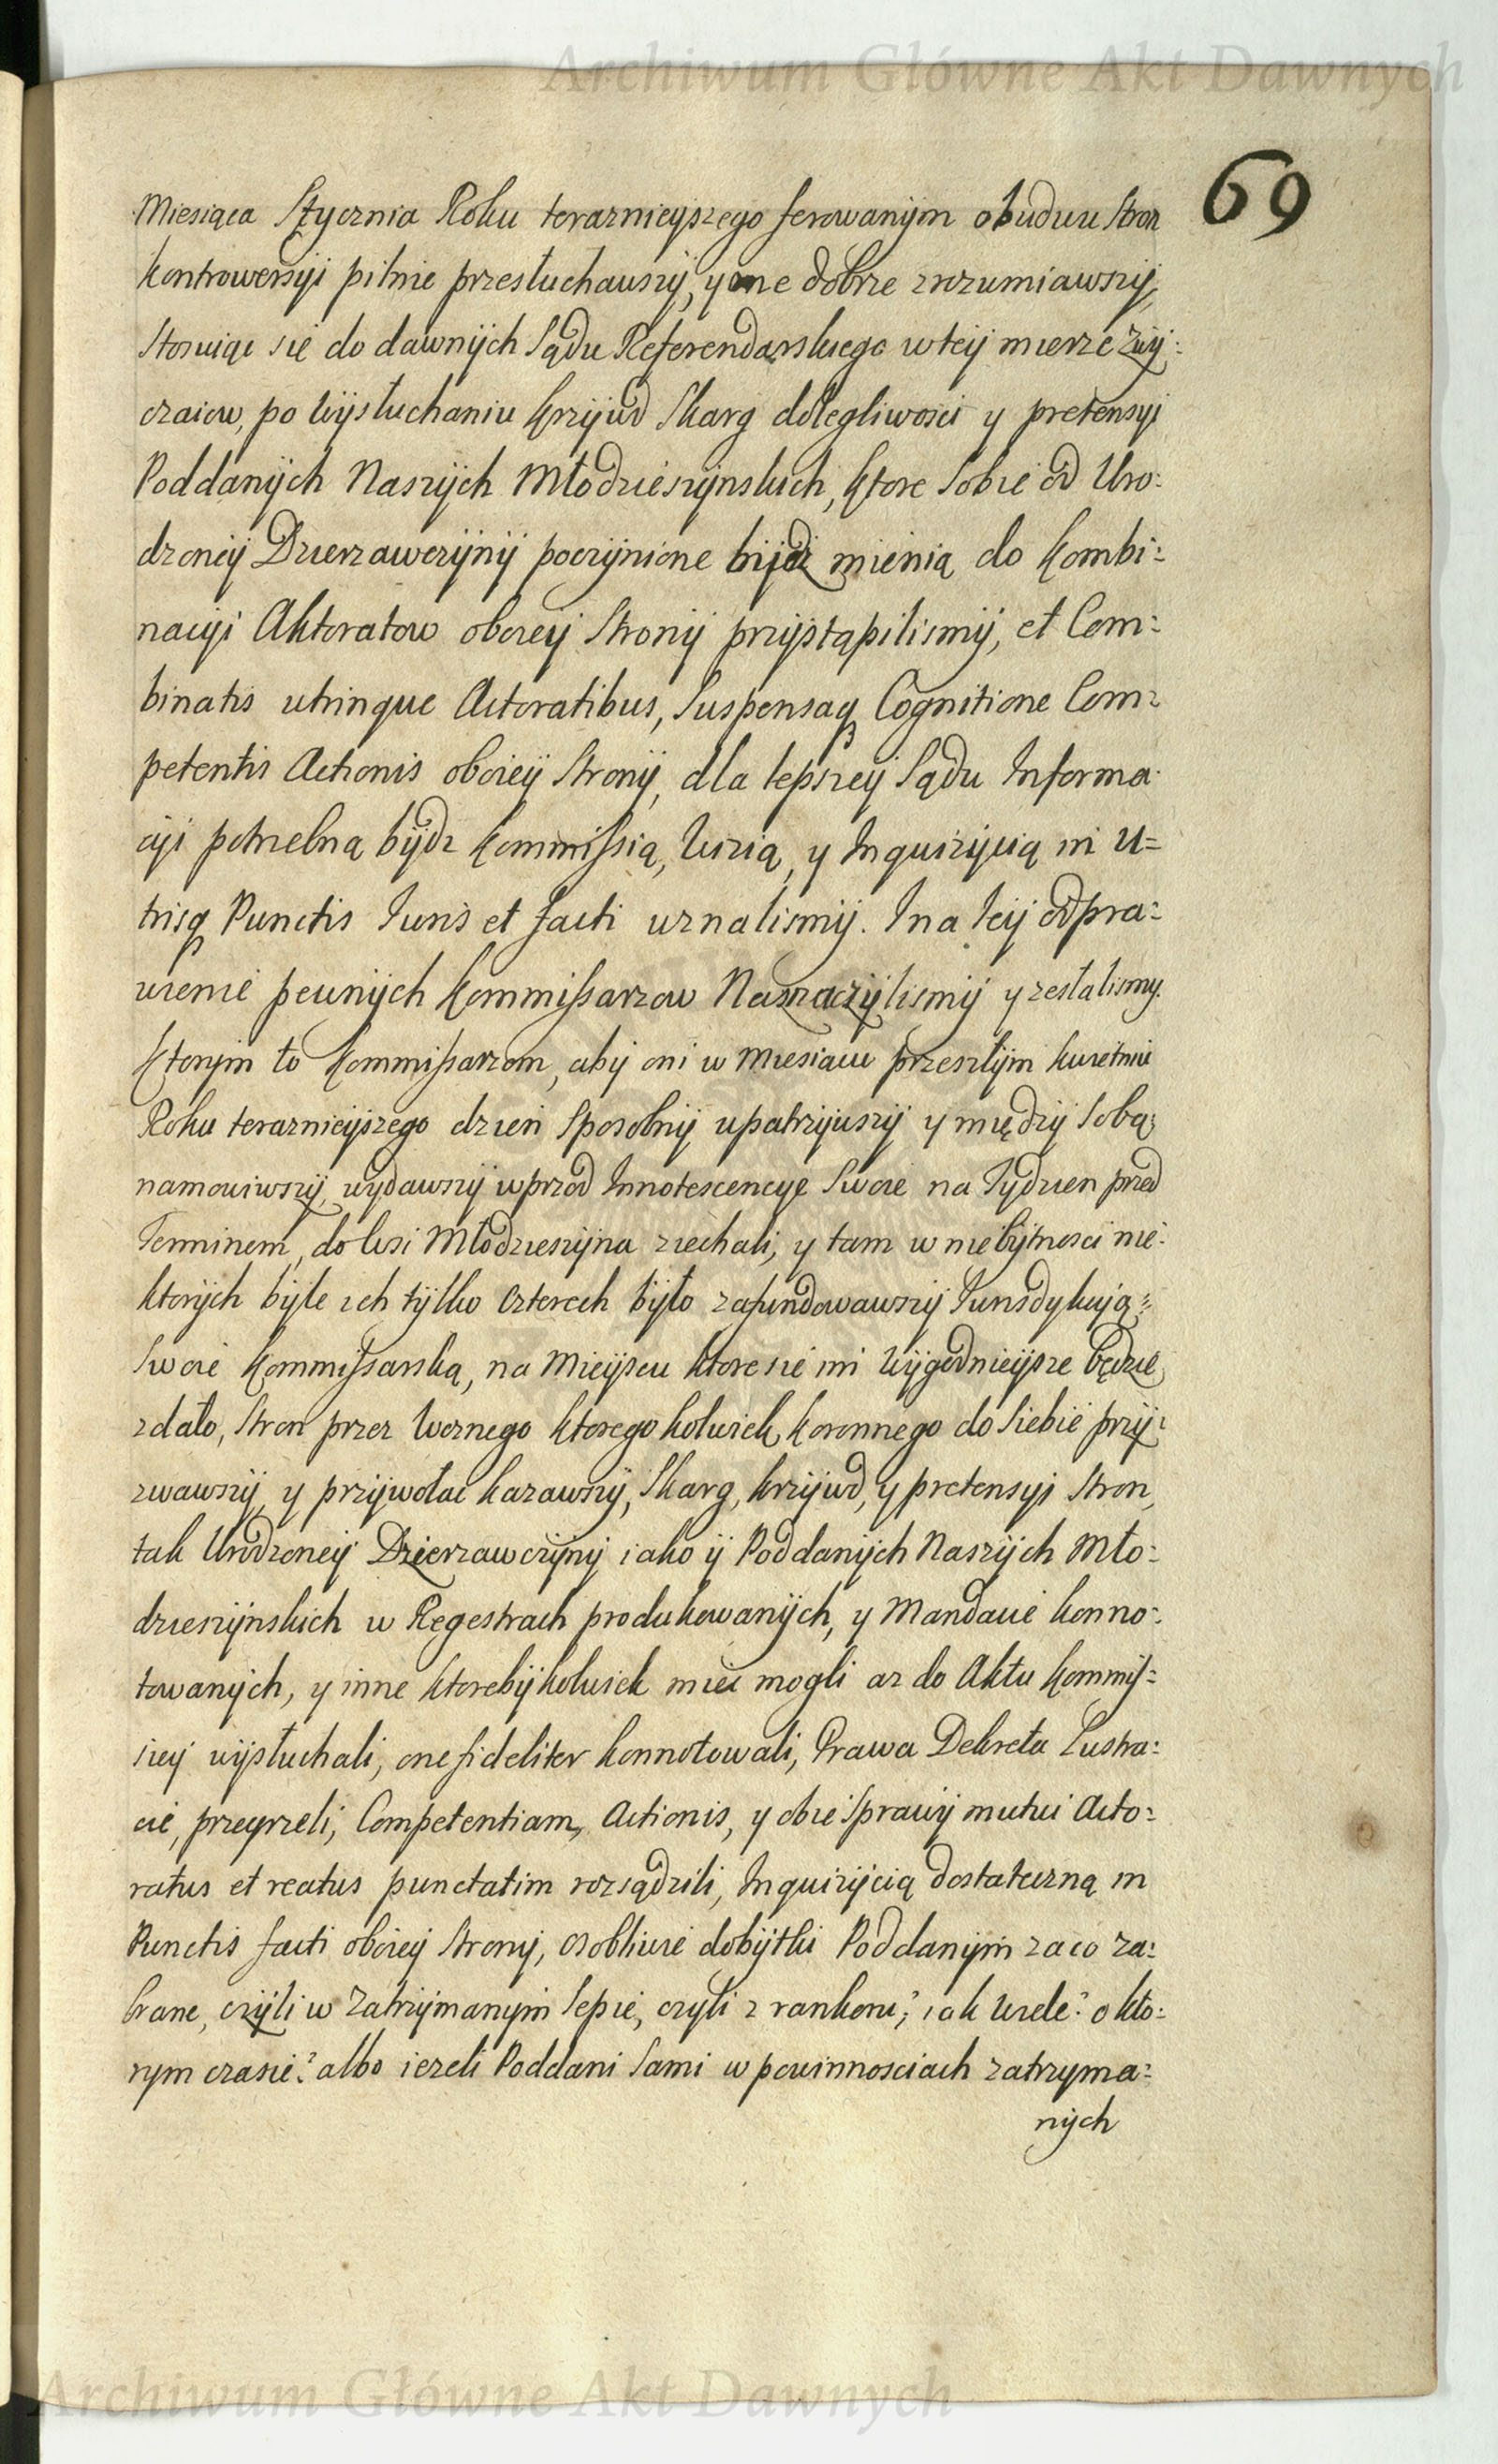 Archiwum Główne Akt Dawnych
69
Miesiąca Stycznia Roku terazniejszego ferowanÿm obudwu Stron
kontrowersÿi pilnie przesłuchawszÿ, y one dobrze zrozumiawszÿ,
stosuiąc się do dawnÿch Sądu Referendarskiego wteÿ mierze zwÿ:
czaiow, po wÿsłuchaniu krzÿwd Skarg dolegliwosci y pretensyi
Poddanÿch Naszÿch Młodzieszÿnskich, ktore Sobie od Uro:
dzoneÿ Dzierzawczÿnÿ poczÿnione bÿdz mienią do kombi:
nacÿi Aktoratow oboieÿ Stronÿ przÿstąpilismÿ, et Com:
binatis utrinque Actoratibus, Suspensaq Cognitione Com:
petentis Actionis oboieÿ Stronÿ, dla lepszeÿ Sądu Informa
cÿi potrzebną bÿdz kommissią, Wizią, y Inquizÿcią in U=
trisq Punctis Iuris et facti uznalismÿ. Ina teÿ odpra:
wienie pewnÿch kommissarzow Naznaczÿlismÿ y zesłalismy.
ktorÿm to kommissarzom, abÿ oni w Miesiacu przeszłÿm kwietniu
Roku teraznieÿszego dzień Sposobnÿ upatrzÿwszÿ y międzÿ Sobą
namowiwszÿ, wÿdawszÿ wprzod Innotescencye Swoie na Tÿdzien przed
Terminem, do Wsi Młodzieszÿna ziechali, y tam w niebÿtnosci nie:
ktorÿch bÿle ich tÿlko czterech bÿło zafundowawszÿ Iurisdykcyią
Swoie kommissarską, na Mieÿscu ktore się im Wÿgodnieÿsze będzie
zdało, Stron przez Woznego ktoregokolwiek koronnego do Siebie przÿ:
zwawszÿ, y przÿwołac kazawszÿ, Skarg, krzÿwd, y pretensyi Stron,
tak Urodzoneÿ Dzierzawczÿnÿ iako ÿ Poddanÿch Naszÿch Mło:
dzieszÿnskich w Regestrach produkowanÿch, y Mandacie konno:
towanÿch, y inne ktorebÿkolwiek miec mogli az do Aktu kommis:
sieÿ wÿsłuchali, one fideliter konnotowali, Prawa Dekreta Lustra:
cie, przeyrzeli, Competentiam, Actionis, y obie Sprawÿ mutui Acto:
ratus et reatus punctatim rozsądzili, Inquizÿcią dostateczną in
Punctis facti oboieÿ Stronÿ, osobliwie dobÿtki Poddanÿm zaco za:
brane, czÿli w zatrzÿmanÿm Sepie, czyli z rankoru? iak Wiele? o kto:
rym czasie? albo iezeli Poddani Sami w powinnosciach zatrzyma:
nÿch
Archiwum Główne Akt Dawnych